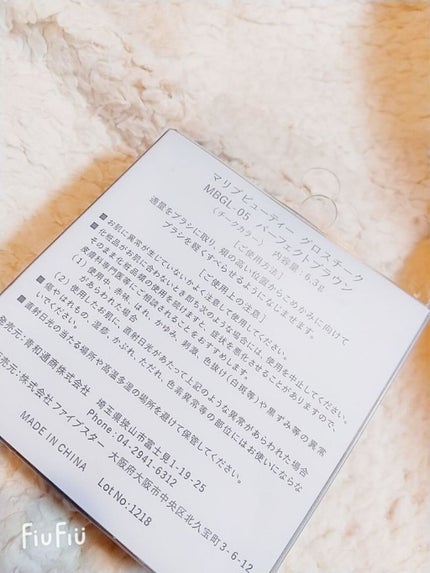 マリブビューティー グロスチーク
MBGL-05 パーフェクトブラウン
(チークカラー) 内容量:6.3g
〔ご使用方法〕
適量をブラシに取り、頬の高い位置からこめかみに向けて
ブラシを軽くすべらせるようになじませます。
〔ご使用上の注意〕
■お肌に異常が生じていないかよく注意して使用してください。
■化粧品がお肌に合わないとき即ち次のような場合には、使用を中止してください。
そのまま化粧品類の使用を続けますと、症状を悪化させることがありますので、
皮膚科専門医等にご相談されることをおすすめします。
(1)使用中、赤味、はれ、かゆみ、刺激、色抜け(白斑等)や黒ずみ等の異常
があらわれた場合
(2)使用したお肌に、直射日光があたって上記のような異常があらわれた場合
■傷やはれもの、湿疹、かぶれ、ただれ、色素異常等の部位にはお使いにならな
いでください。
■直射日光の当たる場所や高温多湿の場所を避けて保管してください。
発売元:青和通商株式会社 埼玉県狭山市富士見1-19-25
Phone:04-2941-6312
株式会社ファイブスター 大阪府大阪市中央区北久宝町3-6-12
MADE IN CHINA Lot No:1218
FiuFiu